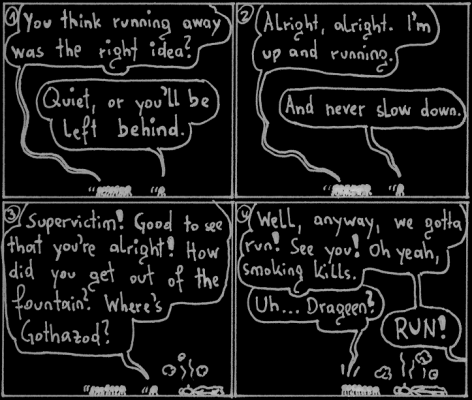 1 You think running away
was the right idea?
Quiet, or you'll be
left behind.
2 Alright, alright. I'm
up and running.
And never slow down.
3 Supervictim! Good to see
that you're alright! How
did you get out of the
fountain? Where's
Gothazod?
4 Well, anyway, we gotta
run! See you! Oh yeah,
smoking kills.
Uh... Drageen?
RUN!